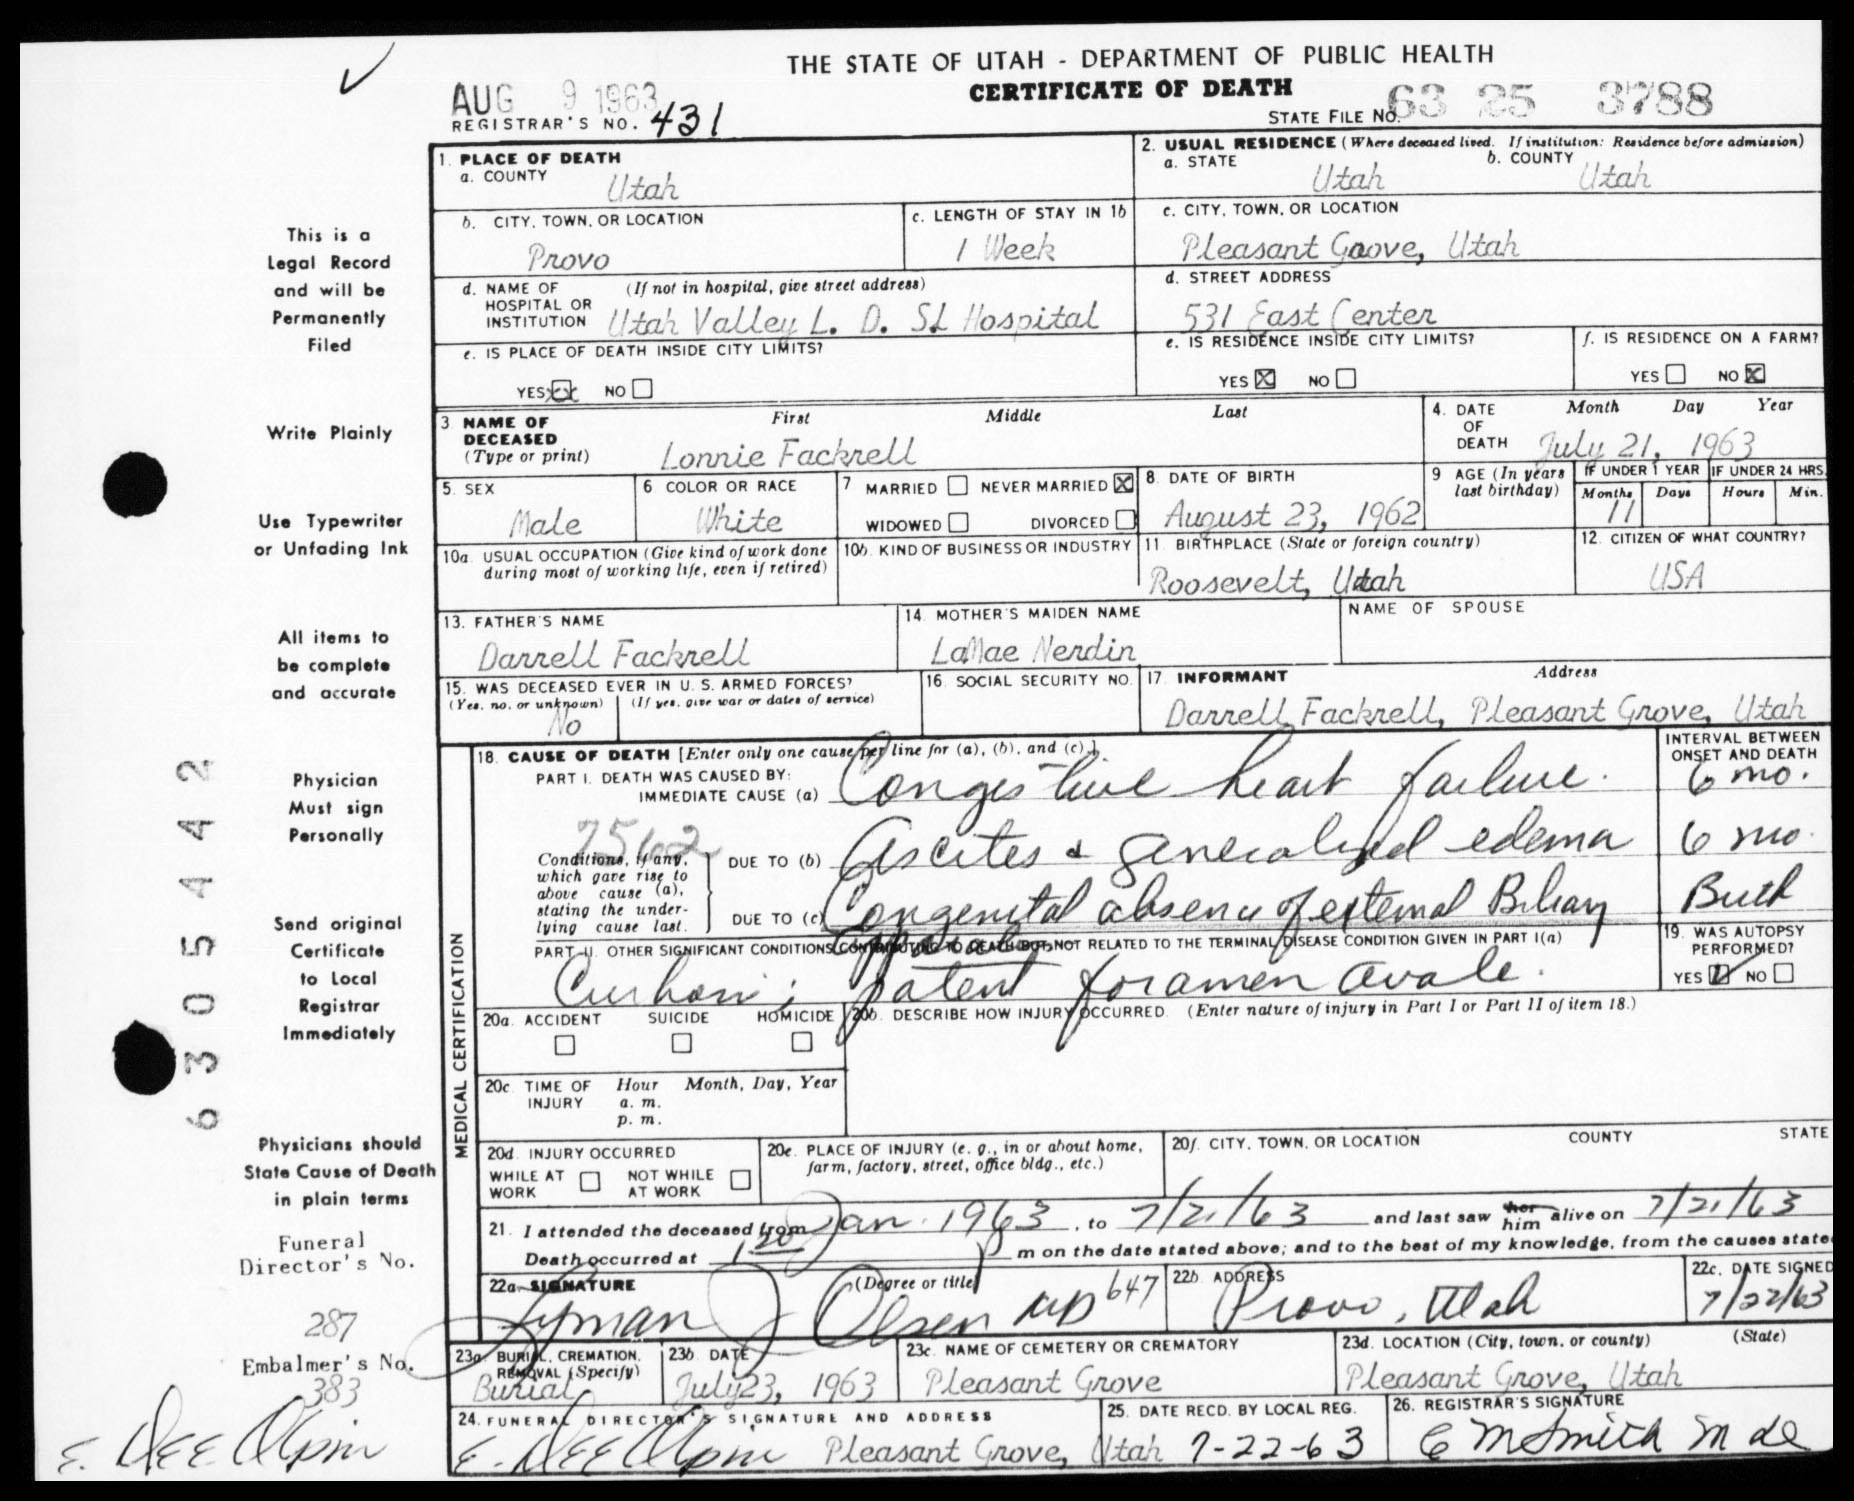 THE STATE OF UTAH - DEPARTMENT OF PUBLIC HEALTH
CERTIFICATE OF DEATH
AUG 9 1963
REGISTRAR'S NO. 431
STATE FILE NO. 63 25 3788
1. PLACE OF DEATH
a. COUNTY
Utah
2. USUAL RESIDENCE (Where deceased lived. If institution: Residence before admission)
a. STATE
Utah
b. COUNTY
Utah
b. CITY, TOWN, OR LOCATION
Provo
c. LENGTH OF STAY IN 1b
1 Week
c. CITY, TOWN, OR LOCATION
Pleasant Goove, Utah
d. NAME OF HOSPITAL OR INSTITUTION
(If not in hospital, give street address)
Utah Valley L. D. SL Hospital
d. STREET ADDRESS
531 East Center
e. IS PLACE OF DEATH INSIDE CITY LIMITS?
YES NO
e. IS RESIDENCE INSIDE CITY LIMITS?
YES X NO
f. IS RESIDENCE ON A FARM?
YES NO X
3 NAME OF DECEASED
(Type or print)
First Middle Last
Lonnie Fackrell
4. DATE OF DEATH
Month Day Year
July 21, 1963
5. SEX
Male
6 COLOR OR RACE
White
7 MARRIED NEVER MARRIED X
WIDOWED DIVORCED
8. DATE OF BIRTH
August 23, 1962
9 AGE (In years last birthday)
IF UNDER 1 YEAR
Months Days
11
IF UNDER 24 HRS.
Hours Min.
10a. USUAL OCCUPATION (Give kind of work done during most of working life, even if retired)
10b. KIND OF BUSINESS OR INDUSTRY
11. BIRTHPLACE (State or foreign country)
Roosevelt, Utah
12. CITIZEN OF WHAT COUNTRY?
USA
13. FATHER'S NAME
Darrell Fackrell
14. MOTHER'S MAIDEN NAME
LaMae Nerdin
NAME OF SPOUSE
15. WAS DECEASED EVER IN U. S. ARMED FORCES?
(Yes, no, or unknown) (If yes, give war or dates of service)
No
16. SOCIAL SECURITY NO.
17. INFORMANT Address
Darrell Fackrell, Pleasant Grove, Utah
MEDICAL CERTIFICATION
18. CAUSE OF DEATH [Enter only one cause per line for (a), (b), and (c).]
PART I. DEATH WAS CAUSED BY:
IMMEDIATE CAUSE (a) Congestive heart failure.
INTERVAL BETWEEN ONSET AND DEATH
6 mo.
7562
Conditions, if any, which gave rise to above cause (a), stating the underlying cause last.
DUE TO (b) Ascites & generalized edema
6 mo.
DUE TO (c) Congenital absence of external Biliary
Birth
PART II. OTHER SIGNIFICANT CONDITIONS CONTRIBUTING TO DEATH BUT NOT RELATED TO THE TERMINAL DISEASE CONDITION GIVEN IN PART I(a)
patent foramen ovale.
19. WAS AUTOPSY PERFORMED?
YES NO
20a. ACCIDENT SUICIDE HOMICIDE
20b. DESCRIBE HOW INJURY OCCURRED. (Enter nature of injury in Part I or Part II of item 18.)
20c. TIME OF INJURY
Hour Month, Day, Year
a. m.
p. m.
20d. INJURY OCCURRED
WHILE AT WORK NOT WHILE AT WORK
20e. PLACE OF INJURY (e. g., in or about home, farm, factory, street, office bldg., etc.)
20f. CITY, TOWN, OR LOCATION COUNTY STATE
21. I attended the deceased from Jan. 1963, to 7/21/63 and last saw her him alive on 7/21/63
Death occurred at 1 20 p m on the date stated above; and to the best of my knowledge, from the causes state
22a. SIGNATURE (Degree or title)
Lyman J Olsen MD 647
22b. ADDRESS
Provo, Utah
22c. DATE SIGNED
7/22/63
23a. BURIAL, CREMATION, REMOVAL (Specify)
Burial
23b. DATE
July 23, 1963
23c. NAME OF CEMETERY OR CREMATORY
Pleasant Grove
23d. LOCATION (City, town, or county) (State)
Pleasant Grove, Utah
24. FUNERAL DIRECTOR'S SIGNATURE AND ADDRESS
E. Dee Olpin Pleasant Grove, Utah
25. DATE RECD. BY LOCAL REG.
7-22-63
26. REGISTRAR'S SIGNATURE
This is a
Legal Record
and will be
Permanently
Filed
Write Plainly
Use Typewriter
or Unfading Ink
All items to
be complete
and accurate
Physician
Must sign
Personally
Send original
Certificate
to Local
Registrar
Immediately
Physicians should
State Cause of Death
in plain terms
Funeral
Director's No.
287
Embalmer's No.
383
E. Dee Olpin
6305442